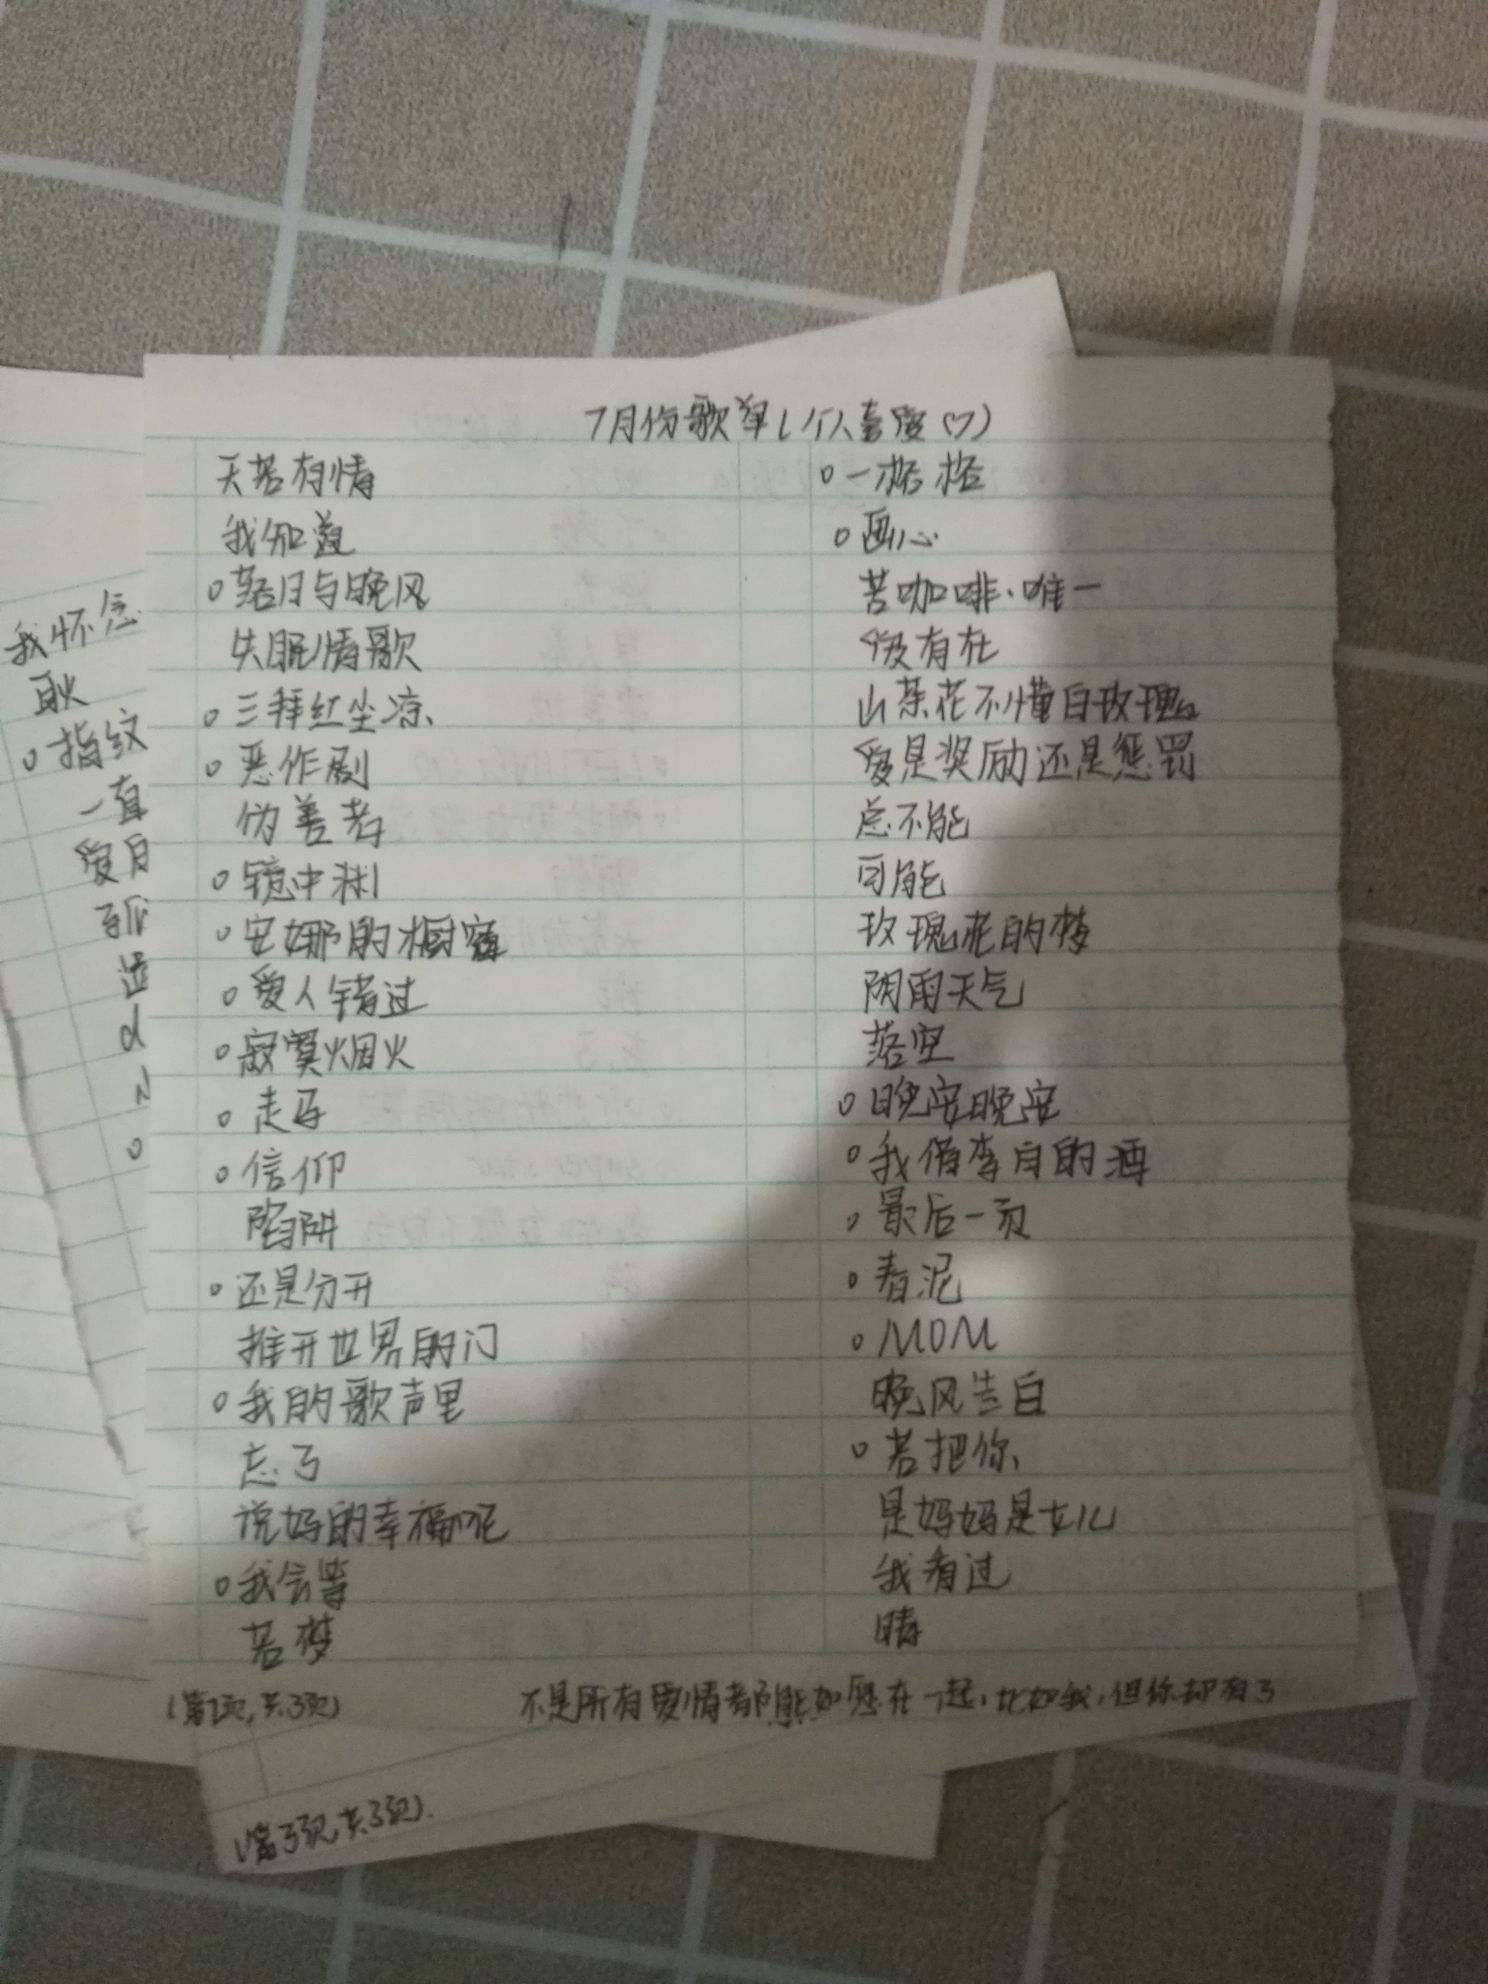 7月份歌单(个人喜爱♡)
天若有情
我知道
○落日与晚风
失眠情歌
○三拜红尘凉
○恶作剧
伪善者
○镜中渊
○安娜的橱窗
○爱人错过
○寂寞烟火
○走马
○信仰
陷阱
○还是分开
推开世界的门
○我的歌声里
忘了
说好的幸福呢
○我会等
若梦
○一格格
○画心
苦咖啡·唯一
没有在
山茶花不懂白玫瑰
爱是奖励还是惩罚
总不能
可能
玫瑰花的梦
阴雨天气
落空
○晚安晚安
○我借李白的酒
○最后一页
○春泥
○MOM
晚风告白
○若把你
是妈妈是女儿
我看过
晴
(第2页,共3页)
不是所有爱情都能如愿在一起,比如我,但你却有了
我怀念
耿
○指纹
一直
爱
孤
(第3页,共3页).